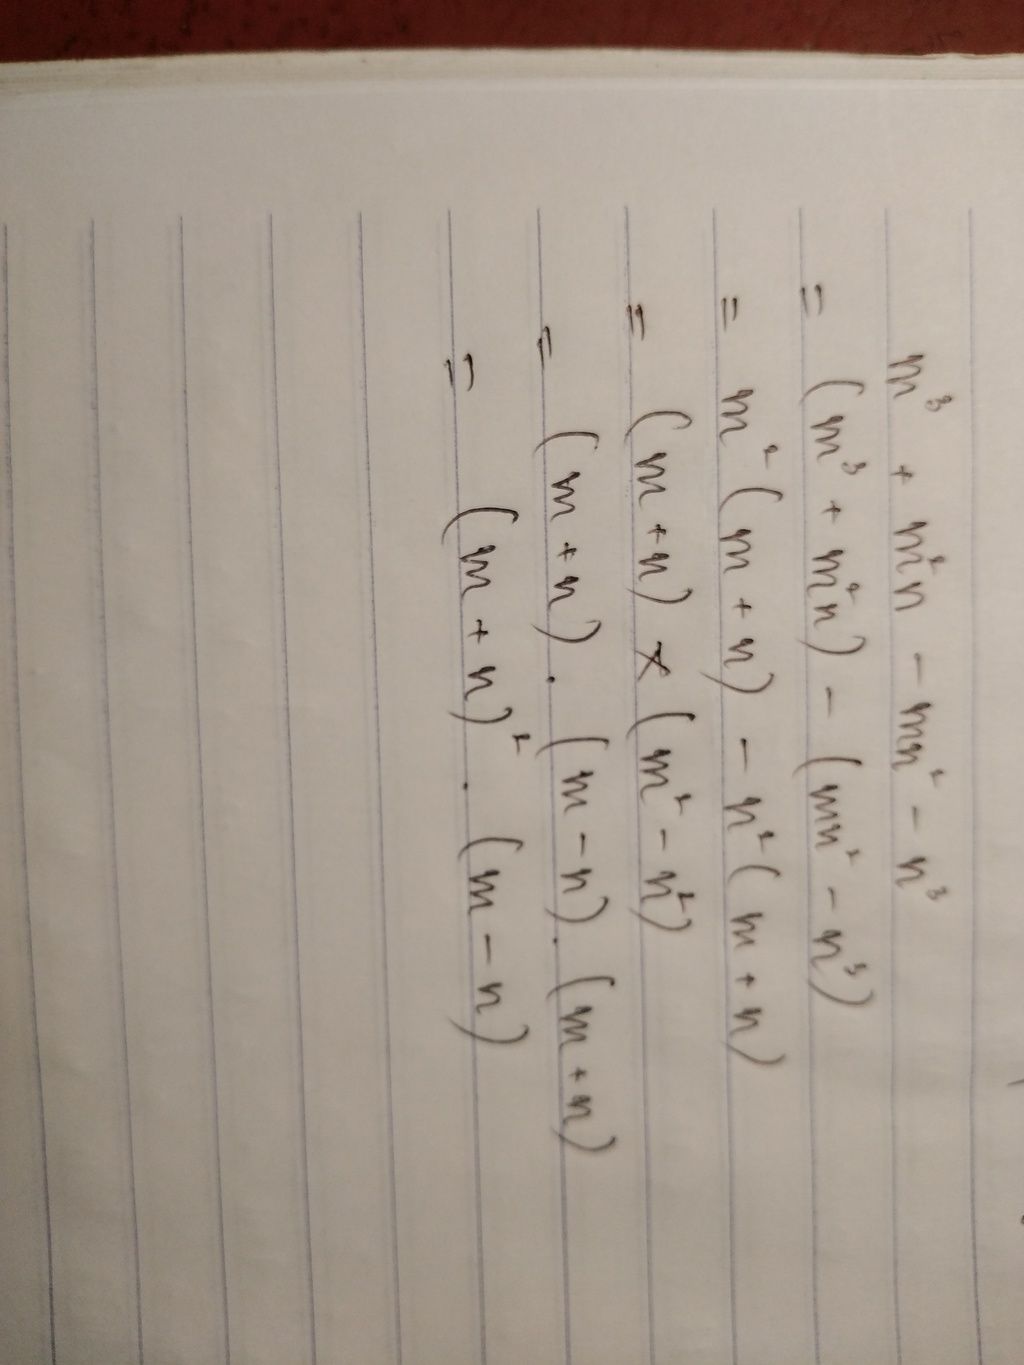 m³ + m²n - mn² - n³
= (m³ + m²n) - (mn² - n³)
= m²(m + n) - n²(m + n)
= (m + n) × (m² - n²)
= (m + n) . (m - n) . (m + n)
= (m + n)² . (m - n)